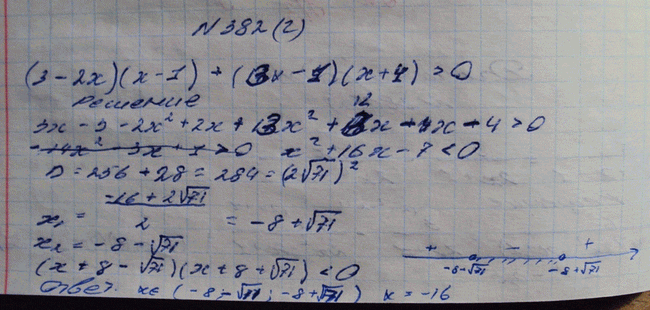 N 382 (2)
(3-2x)(x-1) + (3x-1)(x+4) > 0
Решение
3x-3-2x²+2x+3x²+12x-x-4>0
x²+16x-7<0
D=256+28=284=(2√71)²
x₁ = (-16+2√71)/2 = -8+√71
x₂ = -8-√71
+ - +
-8-√71 -8+√71
(x+8-√71)(x+8+√71)<0
Ответ. x∈(-8-√71; -8+√71) x=-16